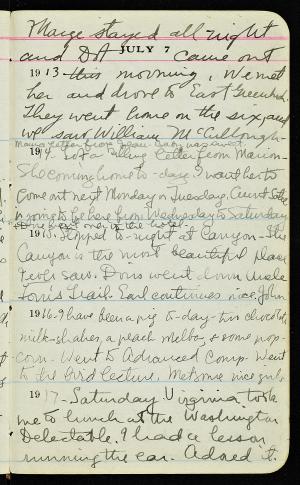 Marge stayed all night
and Dot JULY 7 came out
1913 this morning, We met
her and drove to East Greenbush.
They went home on the six and
we saw William McCullough.
Mama letter from Jean. Baby was sweet.
1914. Got a letter from Marion
She coming home to-day. I want her to
come out next Monday or Tuesday. Aunt
is going to be here from Wednesday to Saturday
1915. Stopped to-night at Canyon. The
Canyon is the most beautiful place
I ever saw. Dons went down Uncle
Tom's Trail. Earl continues nice. John
1916-I have been a pig to-day-two chocolate
milk-shakes, a peach melba, & some pop-
corn. Went to Advanced Comp. Went
to the bird lecture. Met some nice girls.
1917-Saturday Virginia took
me to lunch at the Washington
Delectable. I had a lesson
running the car. Adored it.